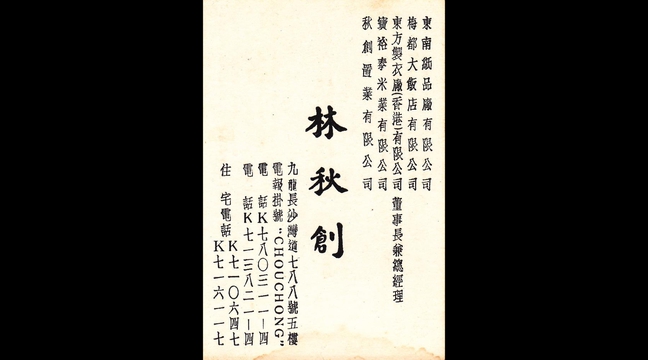 東南緬品廠有限公司
梅都大飯店有限公司
東方製衣廠(香港)有限公司 董事長兼總經理
寶裕泰米業有限公司
秋創置業有限公司
林秋創
九龍長沙灣道七八八號五樓
電報掛號“CHOUCHONG”
電話K七八〇三一一-四
電話K七一三八二一-四
住宅電話K七一〇六四七
K七一六一一七